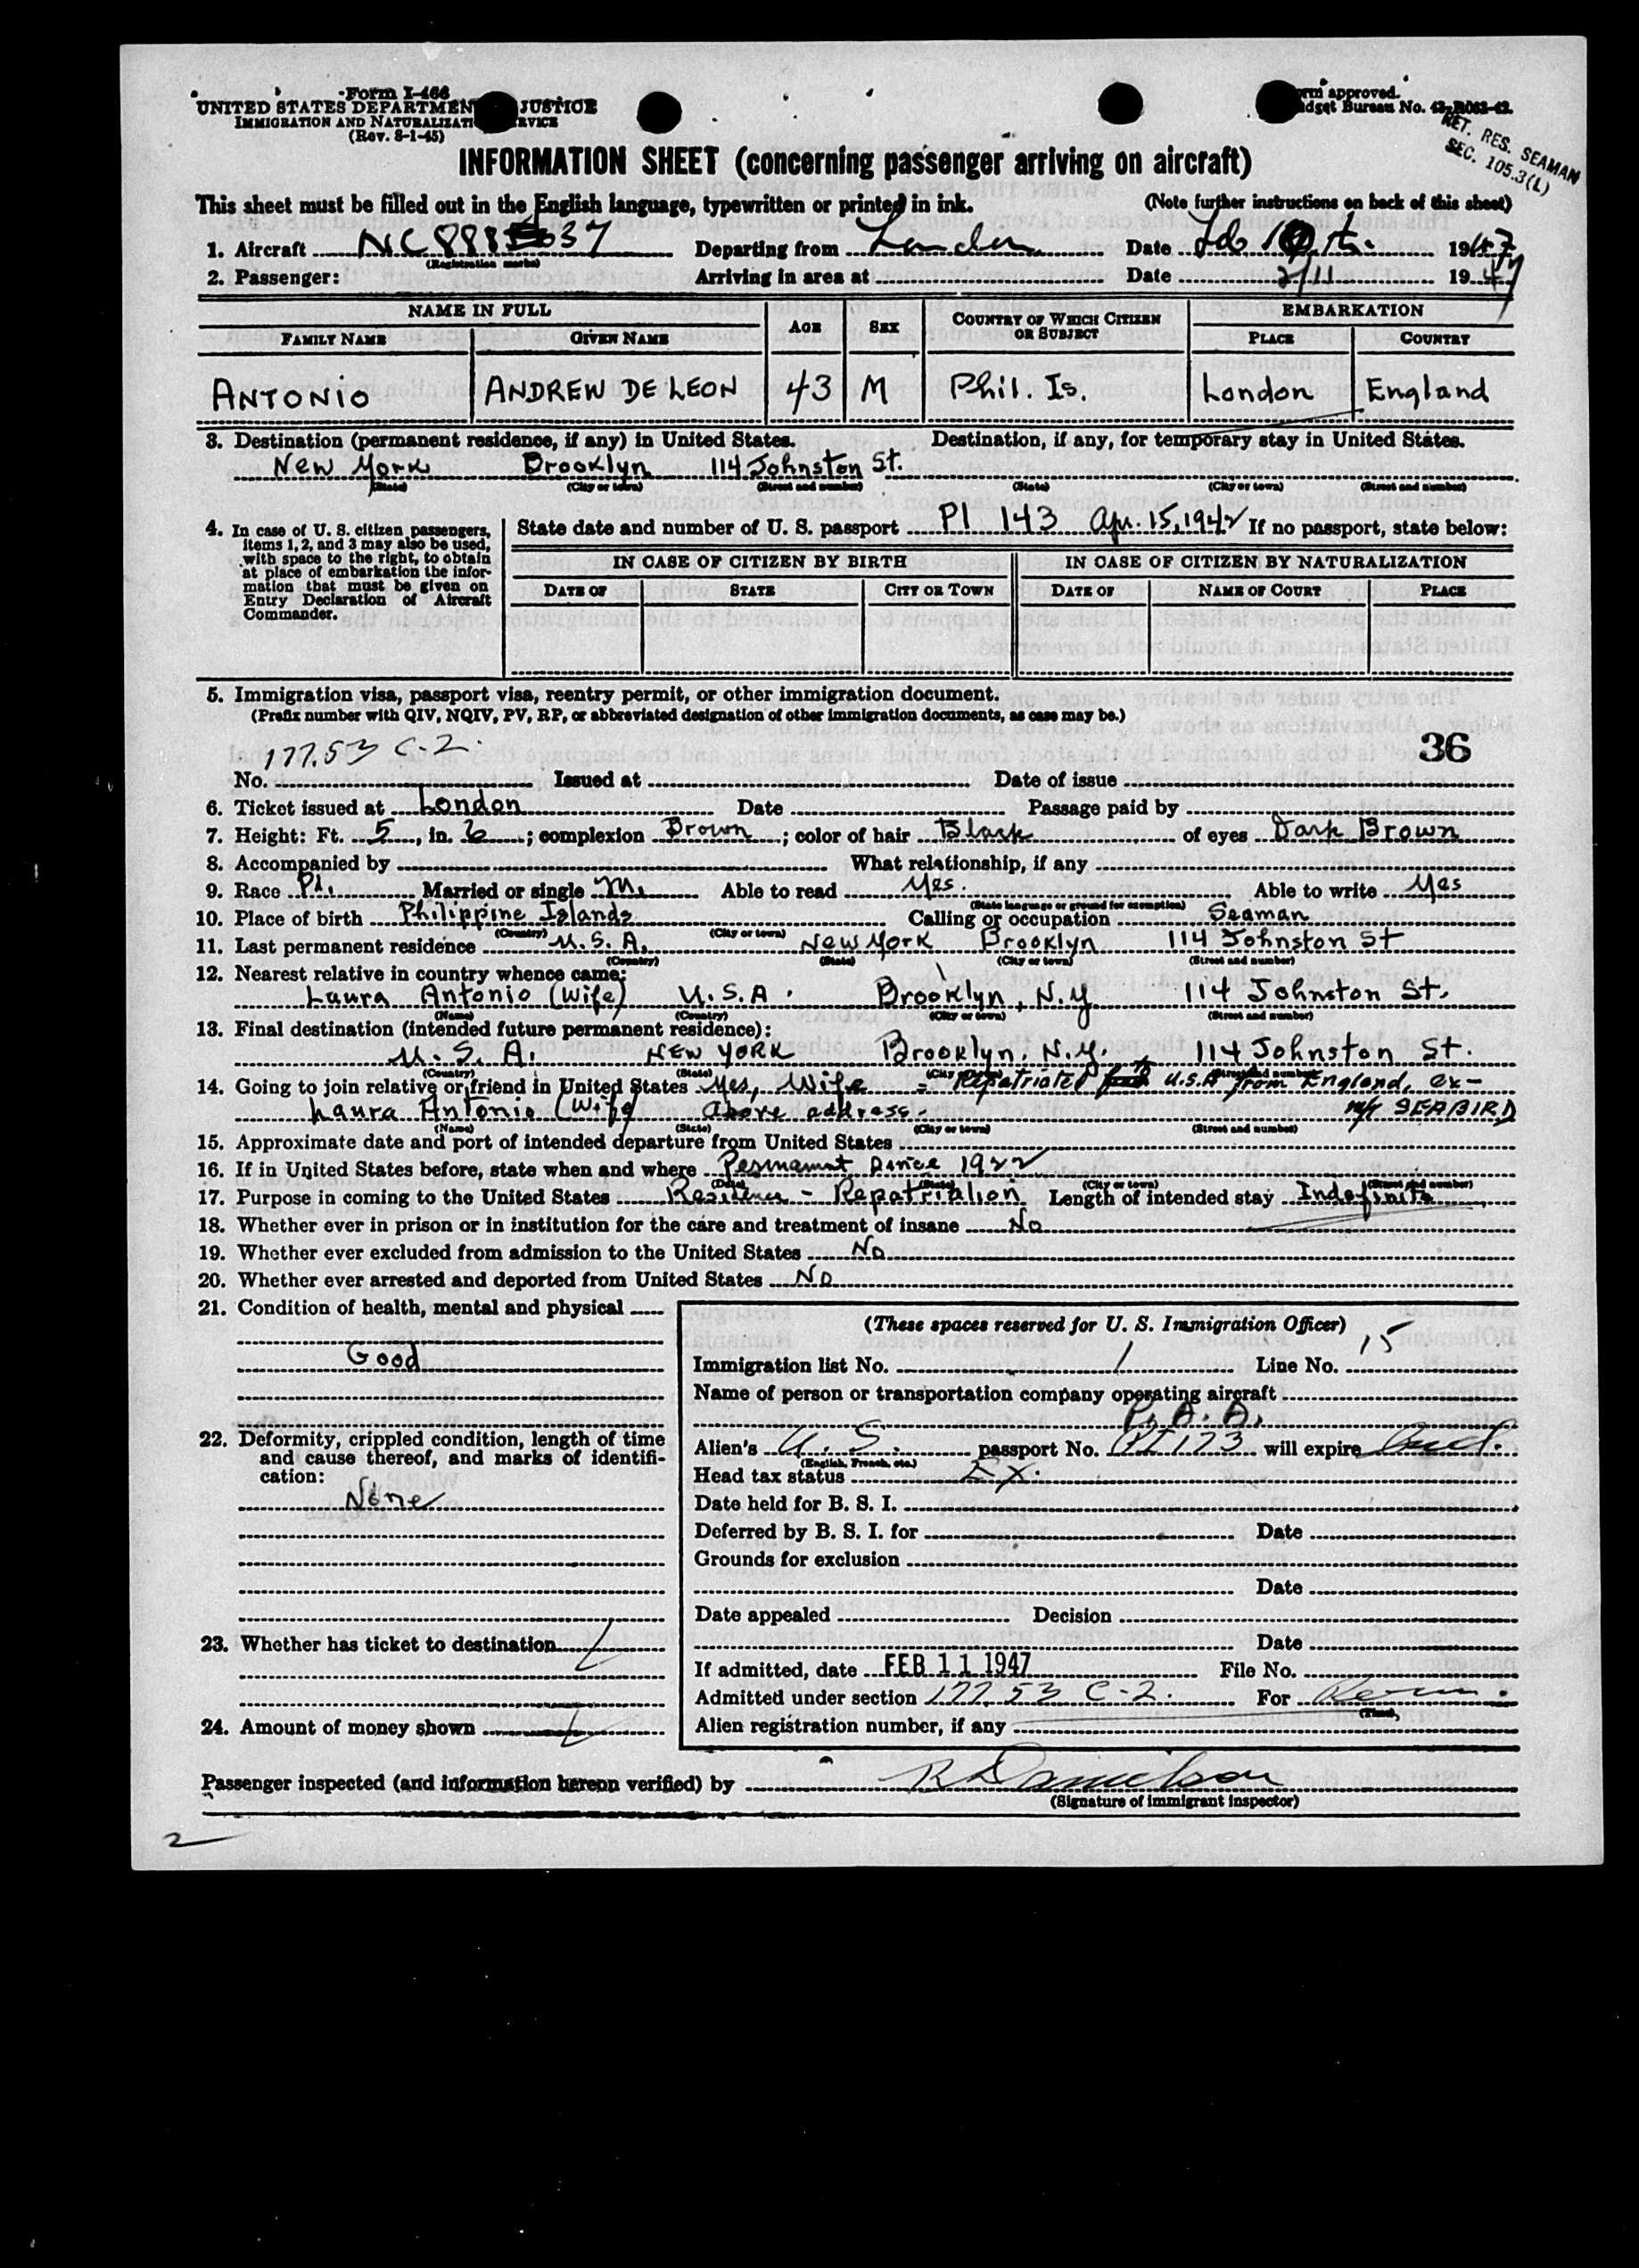 Form I-466
UNITED STATES DEPARTMEN JUSTICE
IMMIGRATION AND NATURALIZATI RVICE
(Rev. 8-1-45)
rm approved.
dget Bureau No. 43-R063-42.
RET. RES. SEAMAN
SEC. 105.3(L)
INFORMATION SHEET (concerning passenger arriving on aircraft)
This sheet must be filled out in the English language, typewritten or printed in ink. (Note further instructions on back of this sheet)
1. Aircraft NC88837 Departing from London Date Feb 10th. 1947
(Registration marks)
2. Passenger: Arriving in area at Date 2/11 1947
NAME IN FULL AGE SEX COUNTRY OF WHICH CITIZEN OR SUBJECT EMBARKATION
FAMILY NAME GIVEN NAME PLACE COUNTRY
ANTONIO ANDREW DE LEON 43 M Phil. Is. London England
3. Destination (permanent residence, if any) in United States. Destination, if any, for temporary stay in United States.
New York Brooklyn 114 Johnston St.
(State) (City or town) (Street and number) (State) (City or town) (Street and number)
4. In case of U. S. citizen passengers, items 1, 2, and 3 may also be used, with space to the right, to obtain at place of embarkation the information that must be given on Entry Declaration of Aircraft Commander.
State date and number of U. S. passport PI 143 Apr. 15, 1942 If no passport, state below:
IN CASE OF CITIZEN BY BIRTH IN CASE OF CITIZEN BY NATURALIZATION
DATE OF STATE CITY OR TOWN DATE OF NAME OF COURT PLACE
5. Immigration visa, passport visa, reentry permit, or other immigration document.
(Prefix number with QIV, NQIV, PV, RP, or abbreviated designation of other immigration documents, as case may be.)
177.53 C-2.
36
No. Issued at Date of issue
6. Ticket issued at London Date Passage paid by
7. Height: Ft. 5, in. 6; complexion Brown; color of hair Black of eyes Dark Brown
8. Accompanied by What relationship, if any
9. Race P.I. Married or single M. Able to read Yes. Able to write Yes
(State language or ground for exemption)
10. Place of birth Philippine Islands Calling or occupation Seaman
(Country) (City or town)
11. Last permanent residence U.S.A. New York Brooklyn 114 Johnston St
(Country) (State) (City or town) (Street and number)
12. Nearest relative in country whence came:
Laura Antonio (Wife) U.S.A. Brooklyn, N.Y. 114 Johnston St.
(Name) (Country) (City or town) (Street and number)
13. Final destination (intended future permanent residence):
U.S.A. NEW YORK Brooklyn, N.Y. 114 Johnston St.
(Country) (State) (City or town) (Street and number)
14. Going to join relative or friend in United States Yes, Wife - Repatriated to U.S.A from England, ex-
Laura Antonio (Wife) Above address. M/V SEABIRD
(Name) (State) (City or town) (Street and number)
15. Approximate date and port of intended departure from United States
16. If in United States before, state when and where Permanent since 1922
(Date) (State) (City or town) (Street and number)
17. Purpose in coming to the United States Residence - Repatriation Length of intended stay Indefinite
18. Whether ever in prison or in institution for the care and treatment of insane No
19. Whether ever excluded from admission to the United States No
20. Whether ever arrested and deported from United States No
21. Condition of health, mental and physical
Good
22. Deformity, crippled condition, length of time and cause thereof, and marks of identification:
None
23. Whether has ticket to destination
24. Amount of money shown
(These spaces reserved for U. S. Immigration Officer)
Immigration list No. 1 Line No. 15
Name of person or transportation company operating aircraft
P.A.A.
Alien's U.S. passport No. will expire
(English, French, etc.)
Head tax status Ex.
Date held for B. S. I.
Deferred by B. S. I. for Date
Grounds for exclusion
Date
Date appealed Decision
Date
If admitted, date FEB 11 1947 File No.
Admitted under section 177.53 C-2. For
(Time)
Alien registration number, if any
Passenger inspected (and information hereon verified) by R Danielson
(Signature of immigrant inspector)
2